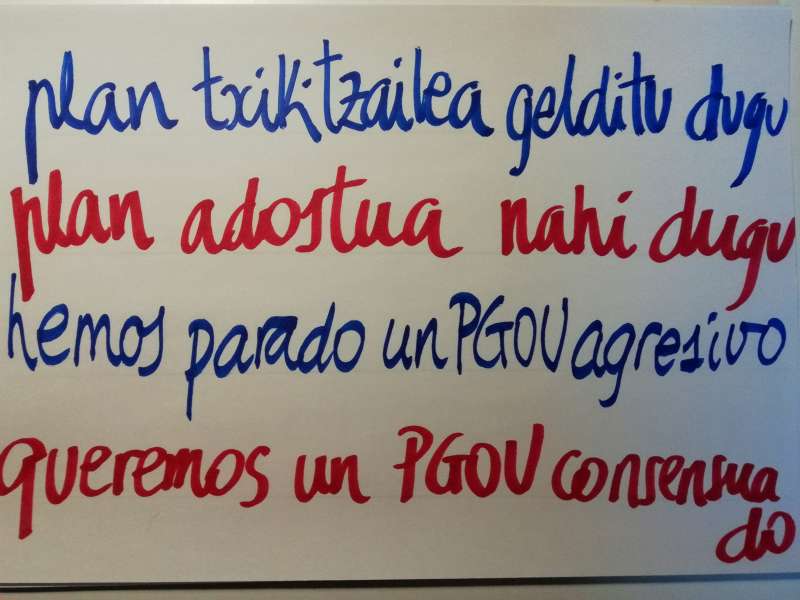 plan txikitzailea gelditu dugu
plan adostua nahi dugu
hemos parado un PGOU agresivo
queremos un PGOU consensua
do